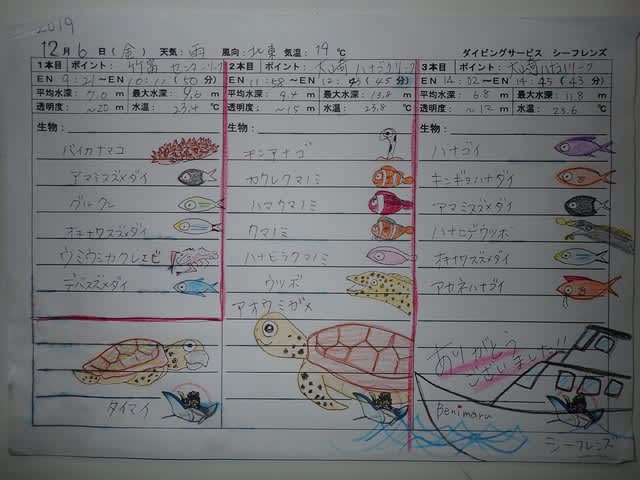 2019
12月6日(金) 天気:雨 風向:北東 気温:19℃ ダイビングサービス シーフレンズ
1本目 ポイント:竹富
EN 9:21~EN 10:11(50分)
平均水深:7.0m 最大水深:9.6m
透明度:~20m 水温:23.4℃
生物:
バイカナマコ
アマミスズメダイ
グルクン
オキナワスズメダイ
ウミウミカクレエビ
デバスズメダイ
タイマイ
2本目 ポイント:大崎 ハナゴイリーフ
EN 11:58~EN 12:43(45分)
平均水深:9.4m 最大水深:13.8m
透明度:~15m 水温:23.8℃
生物:
チンアナゴ
カクレクマノミ
ハマクマノミ
クマノミ
ハナビラクマノミ
ウツボ
アオウミガメ
3本目 ポイント:大崎 ハナゴイリーフ
EN 14:02~EN 14:45(43分)
平均水深:6.8m 最大水深:11.8m
透明度:~12m 水温:23.6℃
生物:
ハナゴイ
キンギョハナダイ
アマミスズメダイ
ハナヒゲウツボ
オキナワスズメダイ
アカネハナゴイ
ありがとう
ございました!!
Benimaru
シーフレンズ